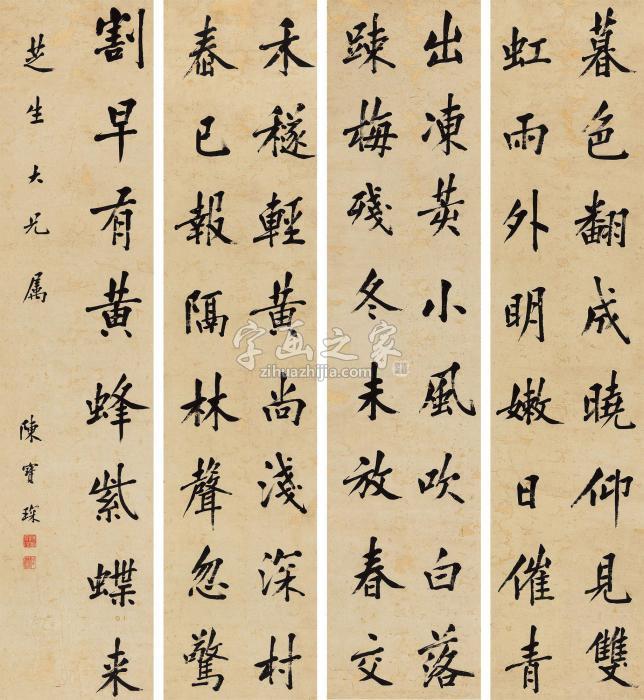 暮色翻成曉仰見雙
虹雨外明嫩日催青
出凍荑小風吹白落
疎梅殘冬未放春交
禾穟輕黃尚淺深村
舂已報隔林聲忽驚
割早有黃蜂紫蝶来
芝生大兄属
陳寶琛
字画之家
zihuazhijia.com